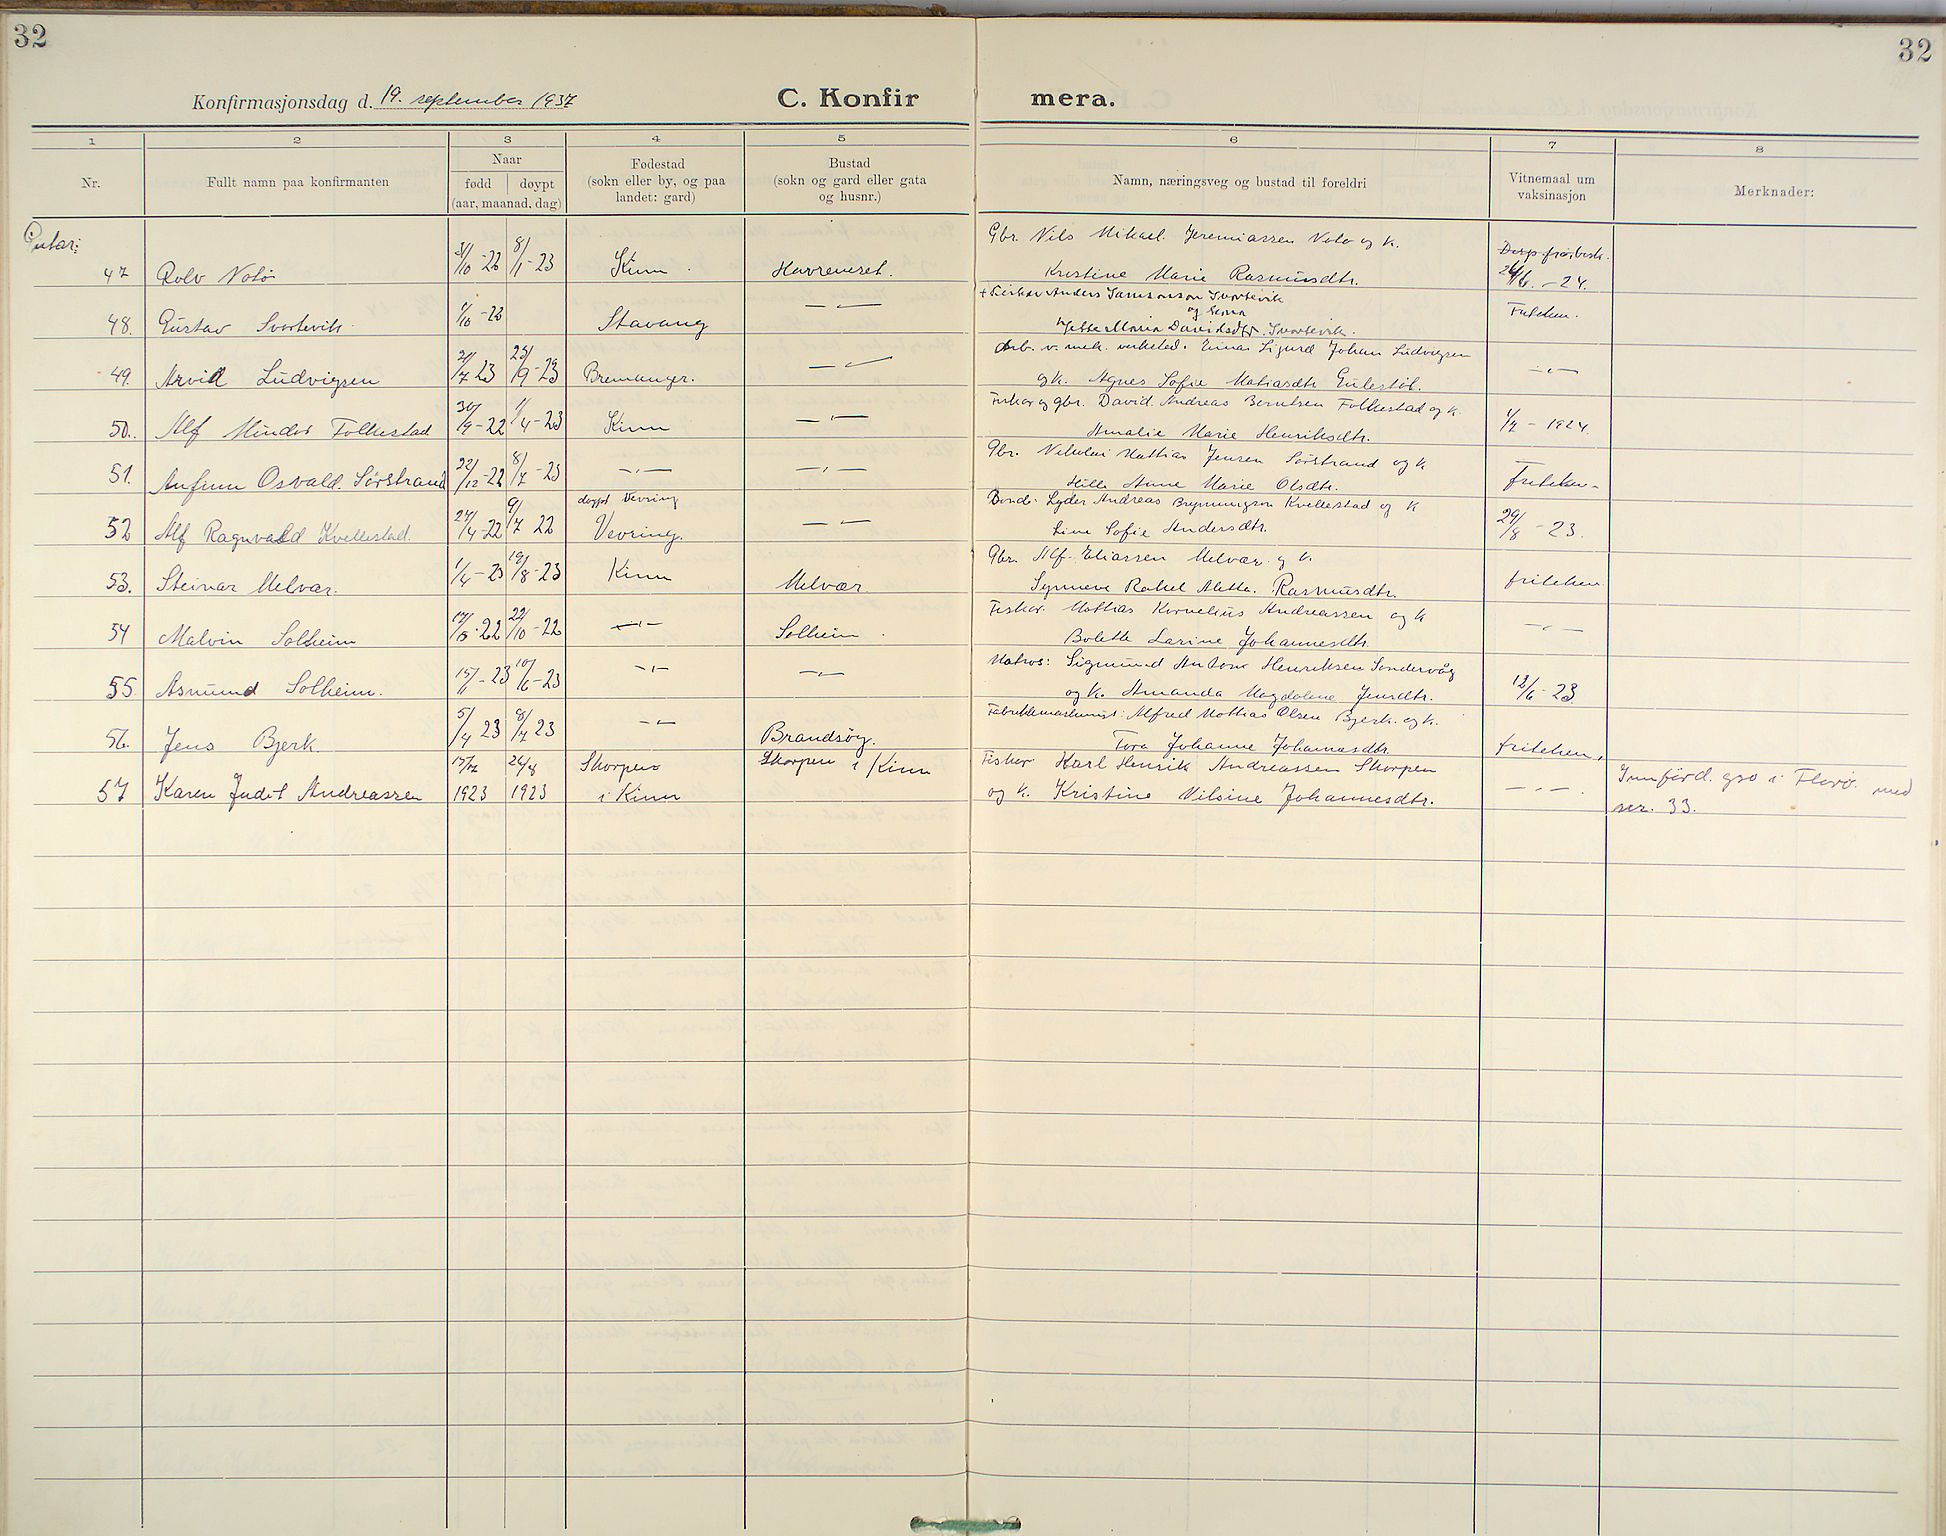 32
32
Konfirmasjonsdag d. 19. september 1937
C. Konfir mera.
1 2 3 4 5 6 7 8
Nr.
Fullt namn paa konfirmanten
Naar
fødd døypt
(aar, maanad, dag)
Fødestad
(sokn eller by, og paa
landet: gard)
Bustad
(sokn og gard eller gata
og husnr.)
Namn, næringsveg og bustad til foreldri
Vitnemaal um
vaksinasjon
Merknader:
Gutar:
Gbr. Nils Mikael Jeremiassen Notø og k.
47 Rolv Notø 31/10-22 8/1-23 Kinn. Havreneset. Kristine Marie Rasmusdtr. 24/6.-24.
+ Fiskar Anders Samsonson Svortevik
48. Gustav Svortevik. 1/10-22 Stavang —"— Maria Davidsdtr. Svortevik. Friteken.
Arb. v. mek. verksted. Einar Sigurd Johan Ludvigsen
49. Arvid Ludvigsen 21/7 23 23/9-23 Bremanger. —"— og k. Agnes Sofie Matiasdtr. Gulestøl. —"—
Fiskar og gbr. David Andreas Berntsen Folkestad og k.
50. Alf Mindor Folkestad 30/9-22 1/4-23 Kinn —"— Amalie Marie Henriksdtr. 1/7-1924.
Gbr. Nikolai Mathias Jensen Sørstrand og k
51. Anfinn Osvald Sørstrand 22/12-22 8/7-23 —"— —"— Hilla Anne Marie Olsdtr. friteken
Bonde: Lyder Andreas Brynningson Kvellestad og k
døypt Vevring
52 Alf Ragnvald Kvellestad. 27/4-22 9/7 22 Vevring. —"— Line Sofie Andersdtr. 29/8-23.
Gbr. Alf Eliassen Melvær og k.
53. Steinar Melvær. 1/4-23 19/8-23 Kinn Melvær Synneve Rakel Aletta Rasmusdtr. friteken
Fiskar Mathias Kornelius Andreassen og k
54 Malvin Solheim 22/10-22 —"— Solheim. Bolette Larine Johannesdtr. —"—
Matros: Sigmund Antone Henriksen Søndervåg
55 Asmund Solheim. 15/1-23 10/6-23 —"— —"— og k. Amanda Magdalene Jensdtr. 12/6-23
Fabrikkmaskinist: Alfred Mathias Olsen Bjerk og k.
56. Jens Bjerk 5/4 23 8/7 23 —"— Brandsøy. Tora Johanne Johannesdtr. friteken,
15/7 26/8 Skorpen Skorpen i Kinn Fiskar Karl Henrik Andreassen Skorpen
57 Karen Judit Andreassen 1923 1923 i Kinn og k. Kristine Nilsine Johannesdtr. —"—. Innførd i Florø med
nr. 33.